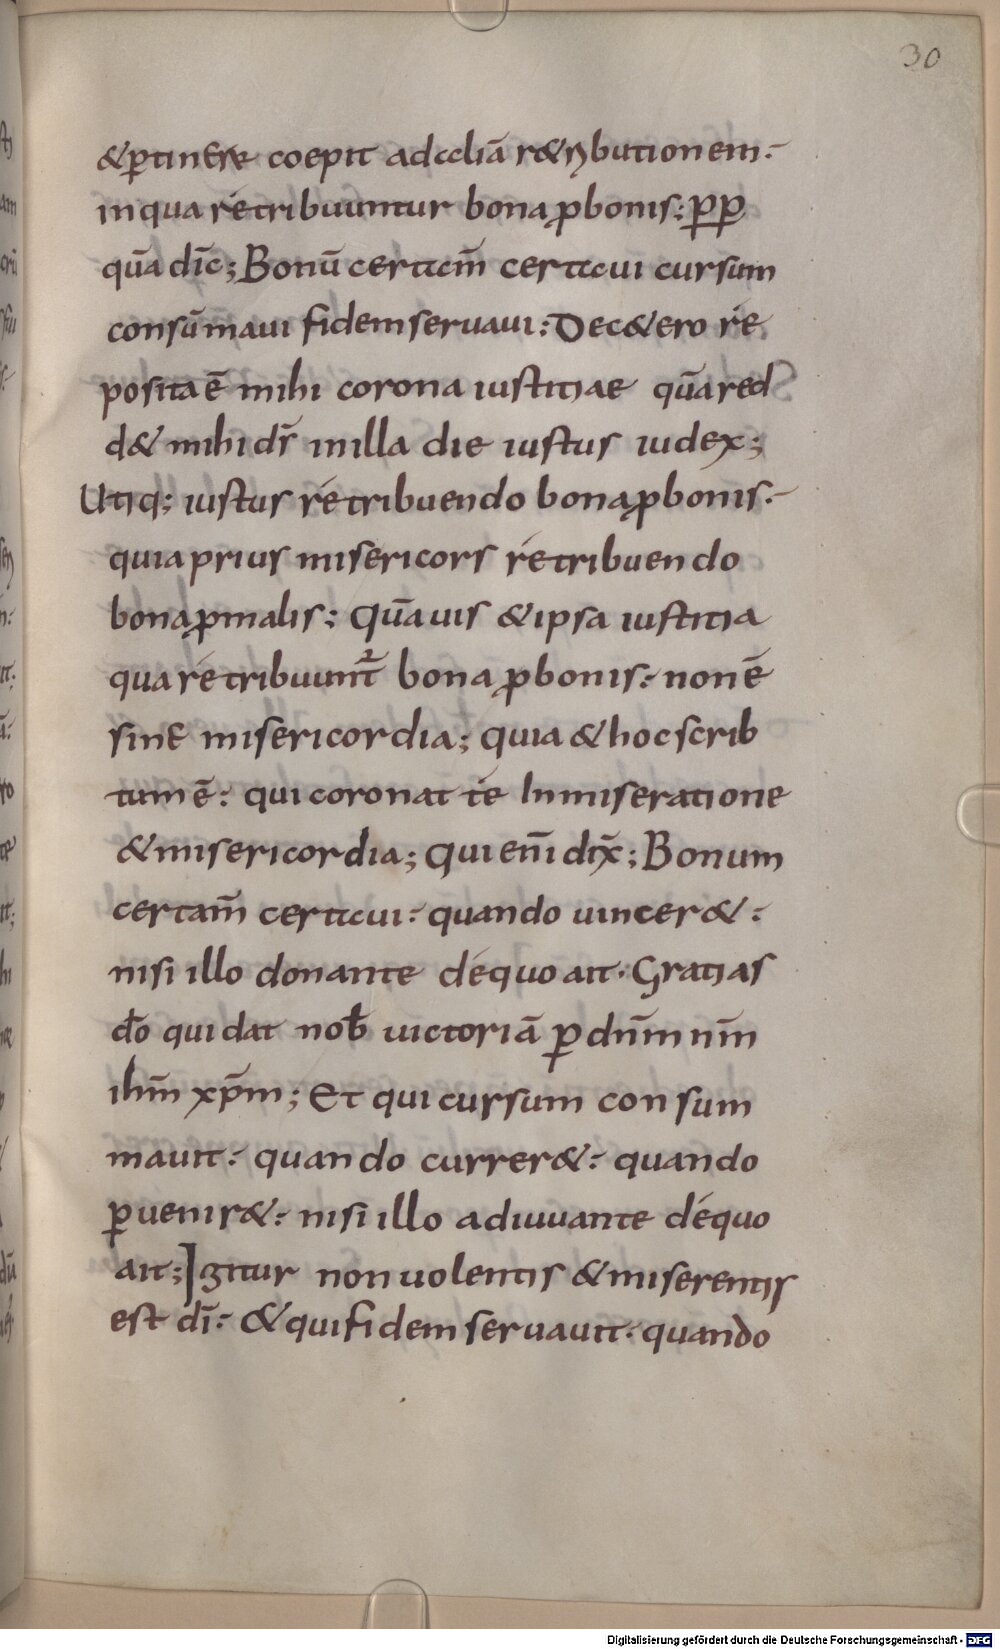 30
&ꝑtinere coepit ad aliā r&ribution em:
in qua retribuuntur bona ꝓbonis: ꝓꝑ
quā dic̄; Bonū certam̄ certaui cursum
consūmaui fidem seruaui: Dec&ero re
posita ē mihi corona iustitiae quā red
d& mihi dn̄s in illa die iustus iudex;
Utiq; iustus retribuendo bona ꝓbonis:
quia prius misericors retribuendo
bona ꝓmalis: Quāuis &ipsa iustitia
qua retribuunt᷑ bona ꝓbonis: non ē
sine misericordia; quia & hoc scrib
tum ē: qui coronat te In miseratione
& misericordia; Qui enī dix̄; Bonum
certam̄ certaui: quando uincer&:
nisi illo donante de quo ait. Gratias
dō qui dat nob̄ uictoriā ꝑ dnm̄ nm̄
ihm̄ xpm̄; Et qui cursum con sum
mauit: quando currer&: quando
ꝑuenir&: nisi illo adiuuante de quo
ait; Igitur non uolentis & miserentis
est dī: & qui fidem seruauit. quando
Digitalisierung gefördert durch die Deutsche Forschungsgemeinschaft - DFG